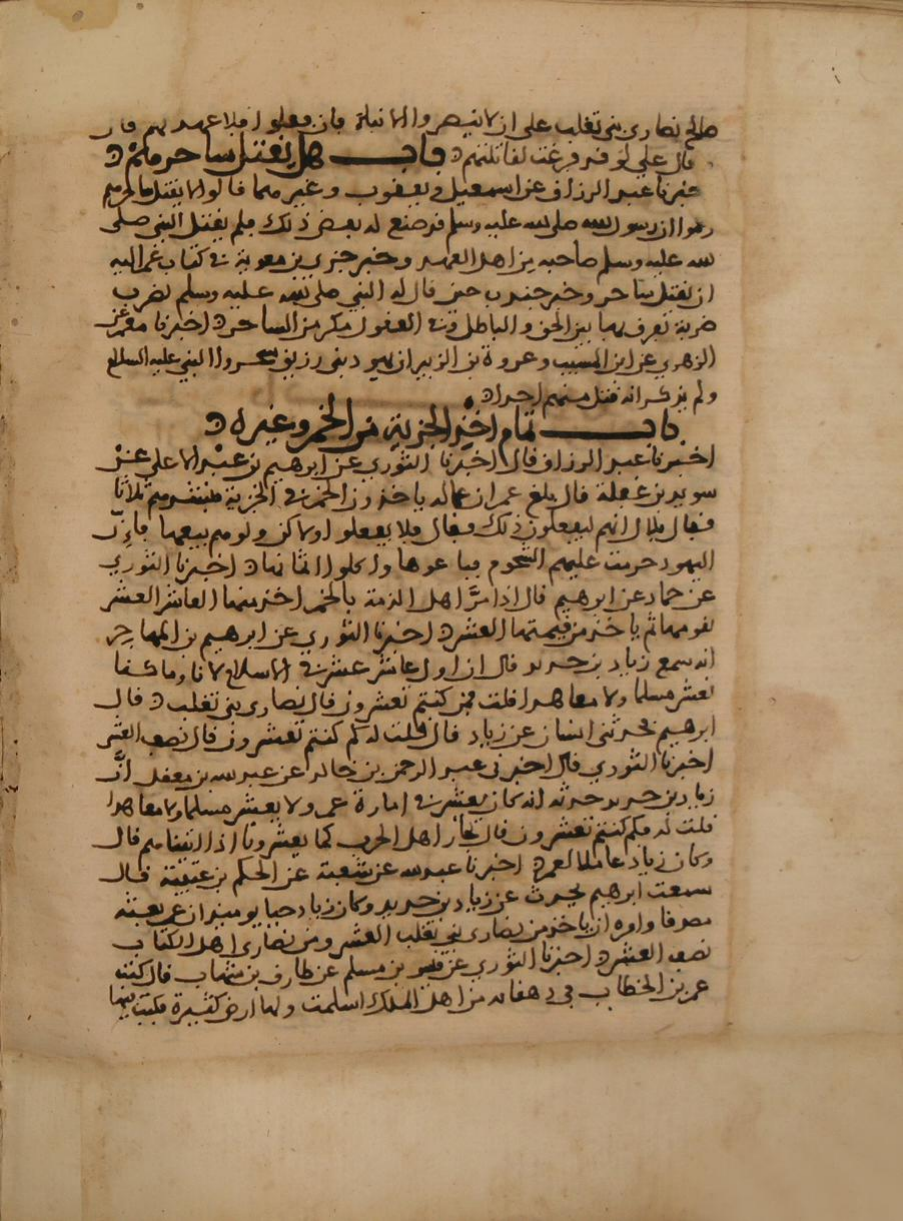 صالح نصارى بني تغلب على ان لا ينصروا الابناء فان فعلوا فلا عهد لهم قال
قال علي لو قد فرغت لقاتلتهم باب هل يقتل ساحرهم
اخبرنا عبد الرزاق عن اسمعيل ويعقوب وغيرهما قالوا لا يقتل ساحرهم
زعموا ان رسول الله صلى الله عليه وسلم قد صنع له بعض ذلك فلم يقتل النبي صلى
الله عليه وسلم صاحبه من اهل العهد وخبر جزي بن معوية في كتاب عمر اليه
ان يقتل ساحر وخبر جندب حين قال له النبي صلى الله عليه وسلم يضرب
ضربة يفرق بها بين الحق والباطل وفي العقول مكر من الساحر اخبرنا معمر عن
الزهري عن ابن المسيب وعروة بن الزبير ان يهود بني زريق سحروا النبي عليه السلام
ولم يذكر انه قتل منهم احدا
باب تمام اخذ الجزية من الخمر وغيره
اخبرنا عبد الرزاق قال اخبرنا الثوري عن ابرهيم بن عبد الاعلى عن
سويد بن غفلة قال بلغ عمر ان عماله ياخذون الخمر في الجزية فنشدهم ثلاثا
فقال بلال انهم ليفعلون ذلك فقال فلا يفعلوا ولاكن ولوهم بيعها فان
اليهود حرمت عليهم الشحوم فباعوها واكلوا اثمانها اخبرنا الثوري
عن حماد عن ابرهيم قال اذا مر اهل الذمة بالخمر اخذ منها العاشر العشر
يقومها ثم ياخذ من قيمتها العشر اخبرنا الثوري عن ابرهيم بن المهاجر
انه سمع زياد بن حدير قال ان اول عاشر عشر في الاسلام لانا وما كنا
نعشر مسلما ولا معاهدا قلت فمن كنتم تعشرون قال نصارى بني تغلب قال
ابرهيم فحدثني انسان عن زياد قال قلت له كم كنتم تعشرون قال نصف العشر
اخبرنا الثوري قال اخبرني عبد الرحمن بن خالد عن عبد الله بن معقل ان
زياد بن حدير حدثه انه كان يعشر في امارة عمر ولا يعشر مسلما ولا معاهدا
قلت له فكم كنتم تعشرون قال تجار اهل الحرب كما يعشرونا اذا اتيناهم قال
وكان زياد عاملا لعمر اخبرنا عبد الله عن شعبة عن الحكم بن عتيبة قال
سمعت ابرهيم يحدث عن زياد بن حدير وكان زياد حيا يومئذ ان عمر بعثه
مصدقا وامره ان ياخذ من نصارى بني تغلب العشر ومن نصارى اهل الكتاب
نصف العشر اخبرنا الثوري عن قيس بن مسلم عن طارق بن شهاب قال كتب
عمر بن الخطاب في دهقانة من اهل الملك اسلمت ولها ارض كثيرة فكتب فيها